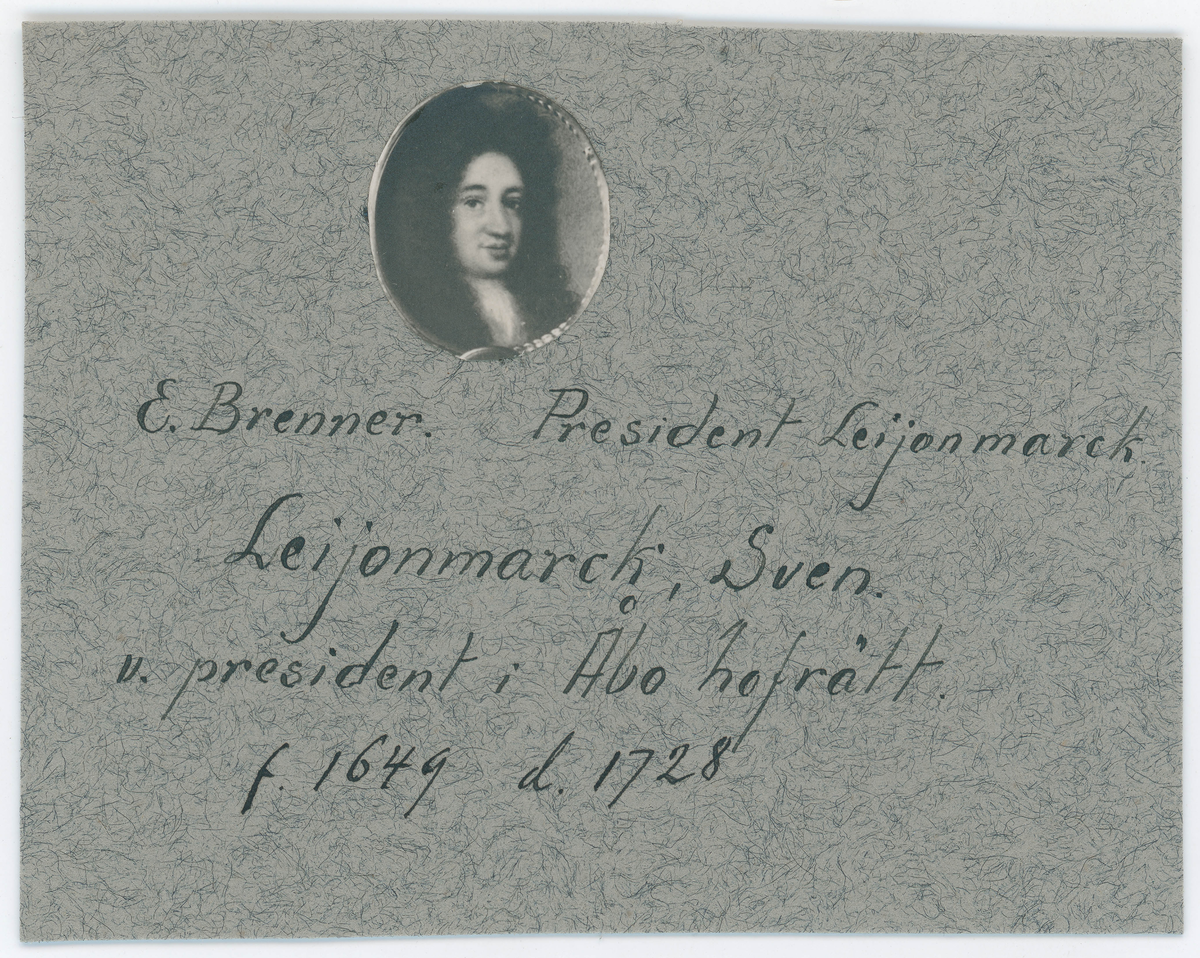 E. Brenner. President Leijonmarck.
Leijonmarck, Sven.
v. president i Åbo hofrätt.
f. 1649 d. 1728